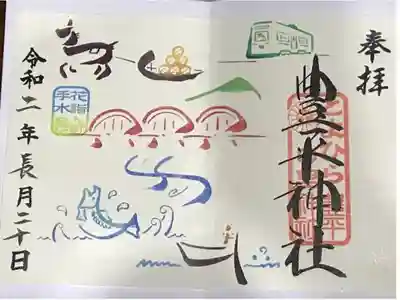 奉拝
豊平神社
令和二年長月二十日
花詣
手水